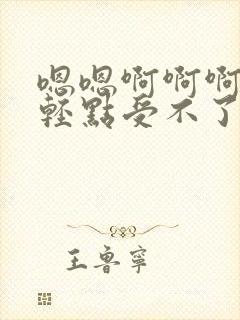 嗯嗯啊啊啊
輕點受不了
王魯寧